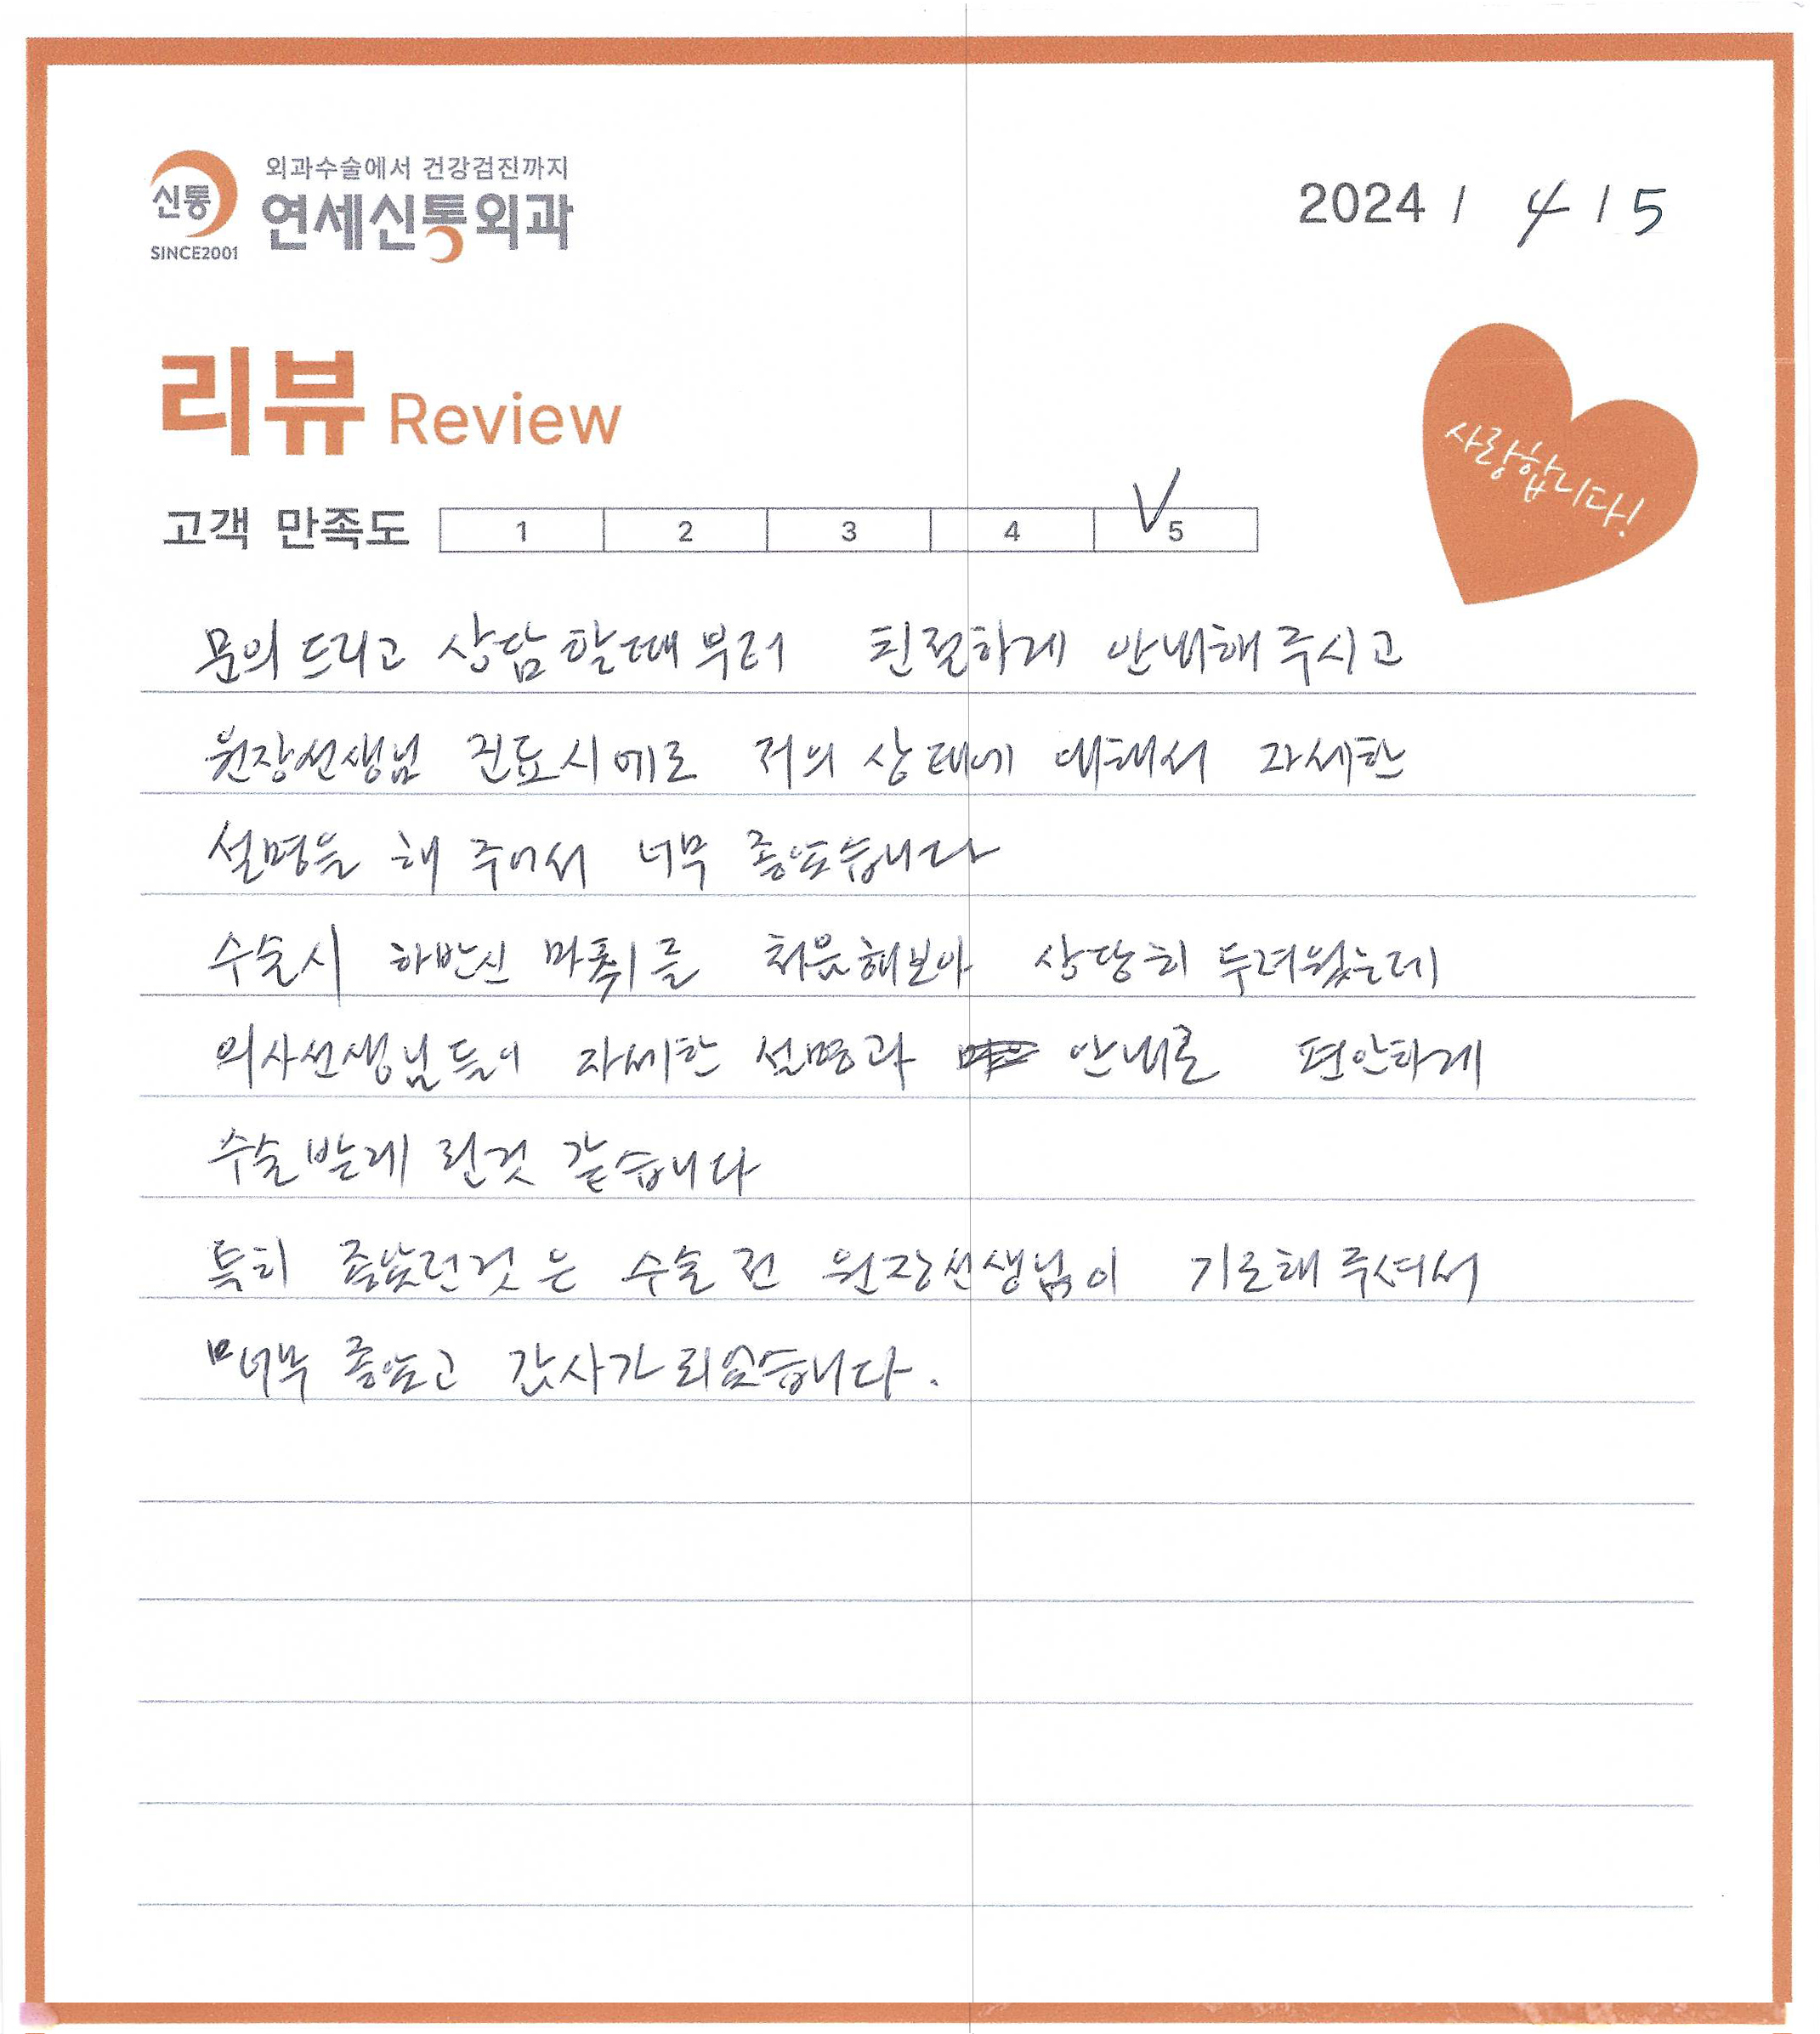 외과수술에서 건강검진까지
신통
연세신통외과
SINCE2001
2024 / 4 / 5
리뷰 Review
사랑합니다!
고객 만족도 1 2 3 4 5
문의 드리고 상담 할때부터 친절하게 안내해 주시고
원장선생님 진료시에도 저의 상태에 대해서 자세한
설명을 해 주어서 너무 좋았습니다
수술시 하반신 마취를 처음해보아 상당히 두려웠는데
의사선생님들이 자세한 설명과 안내로 편안하게
수술받게 된것 같습니다
특히 좋았던것은 수술 전 원장선생님이 기도해 주셔서
너무 좋았고 감사가 되었습니다.